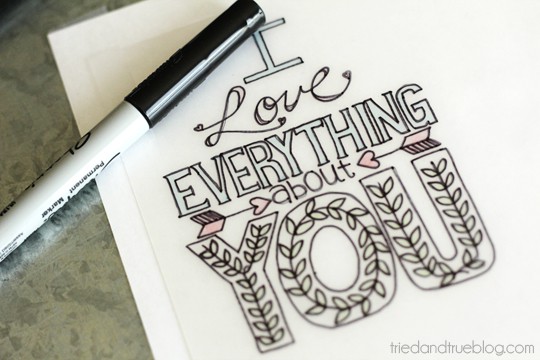 I
Love
EVERYTHING
about
YOU
Permanent
Marker
triedandtrueblog.com